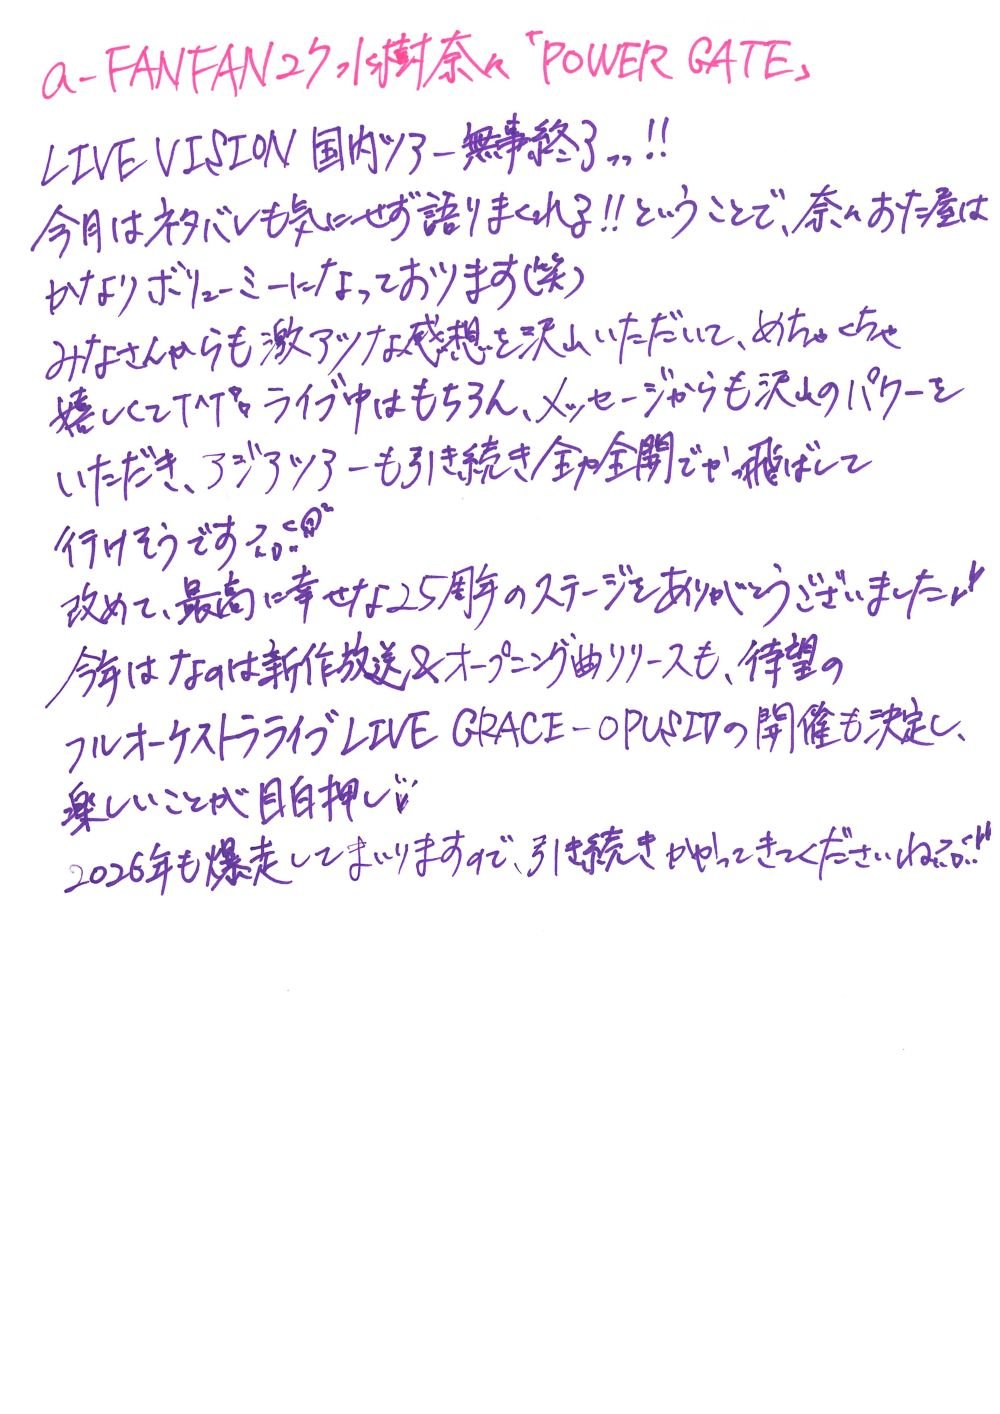 a-FANFAN27 水樹奈々「POWER GATE」
LIVE VISION 国内ツアー無事終了っっ!!
今月はネタバレも気にせず語りまくれる!!ということで、奈々おた屋は
かなりボリューミーになっております(笑)
みなさんからも激アツな感想を沢山いただいて、めちゃくちゃ
嬉しくてT^T ライブ中はもちろん、メッセージからも沢山のパワーを
いただき、アジアツアーも引き続き全力全開でかっ飛ばして
行けそうですっ
改めて、最高に幸せな25周年のステージをありがとうございましたっ
今年はなのは新作放送&オープニング曲リリースも、待望の
フルオーケストラライブLIVE GRACE-OPUSⅣの開催も決定し、
楽しいことが目白押し♡
2026年も爆走してまいりますので、引き続きかやってきてくださいねっ